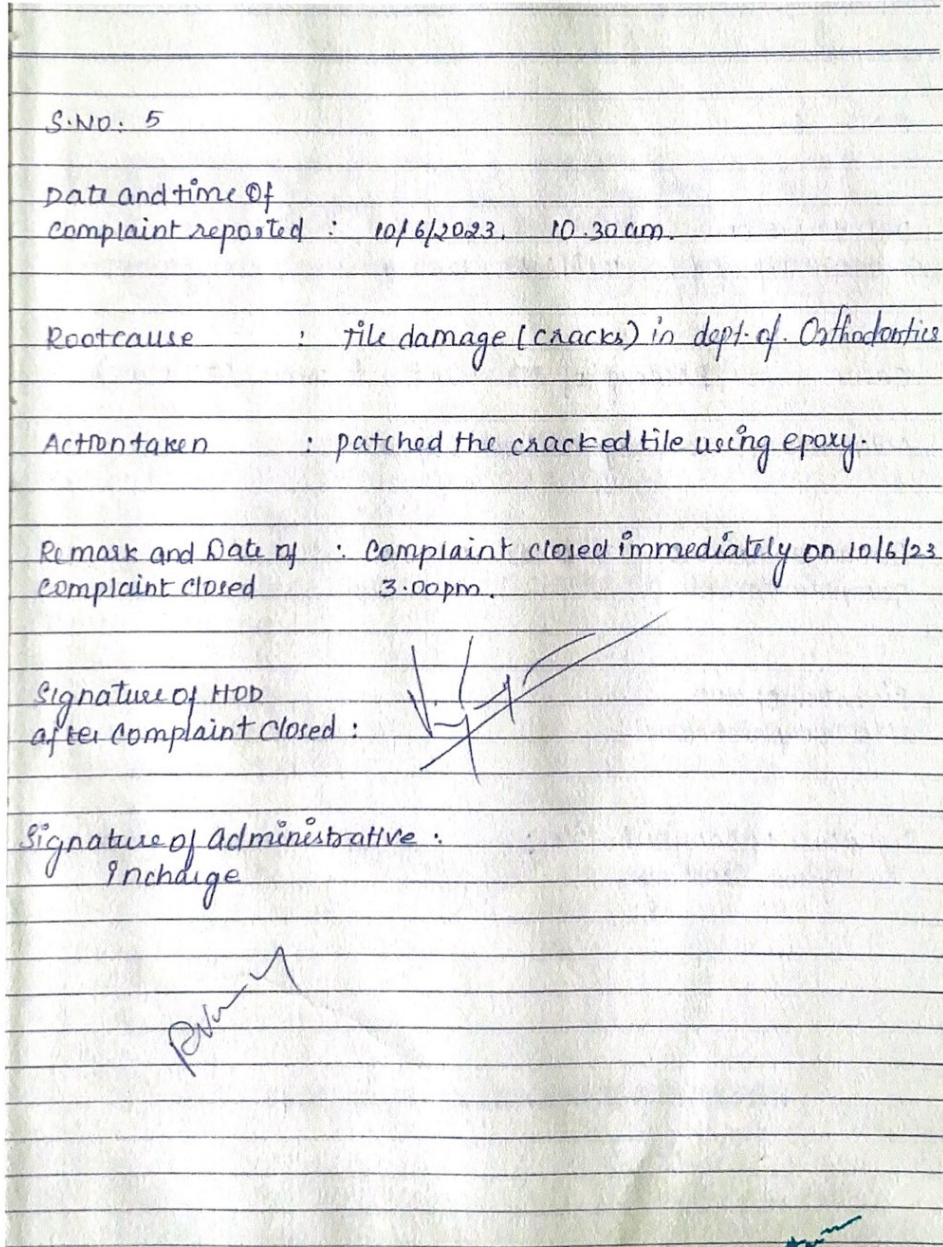 S.NO: 5
Date and time Of
complaint reported : 10/6/2023, 10.30 am.
Rootcause : Tile damage (cracks) in dept. of. Orthodontics
Action taken : patched the cracked tile using epoxy.
Remark and Date of : Complaint closed immediately on 10/6/23
complaint closed 3.00pm.
Signature of HOD
after complaint closed :
Signature of administrative :
Incharge